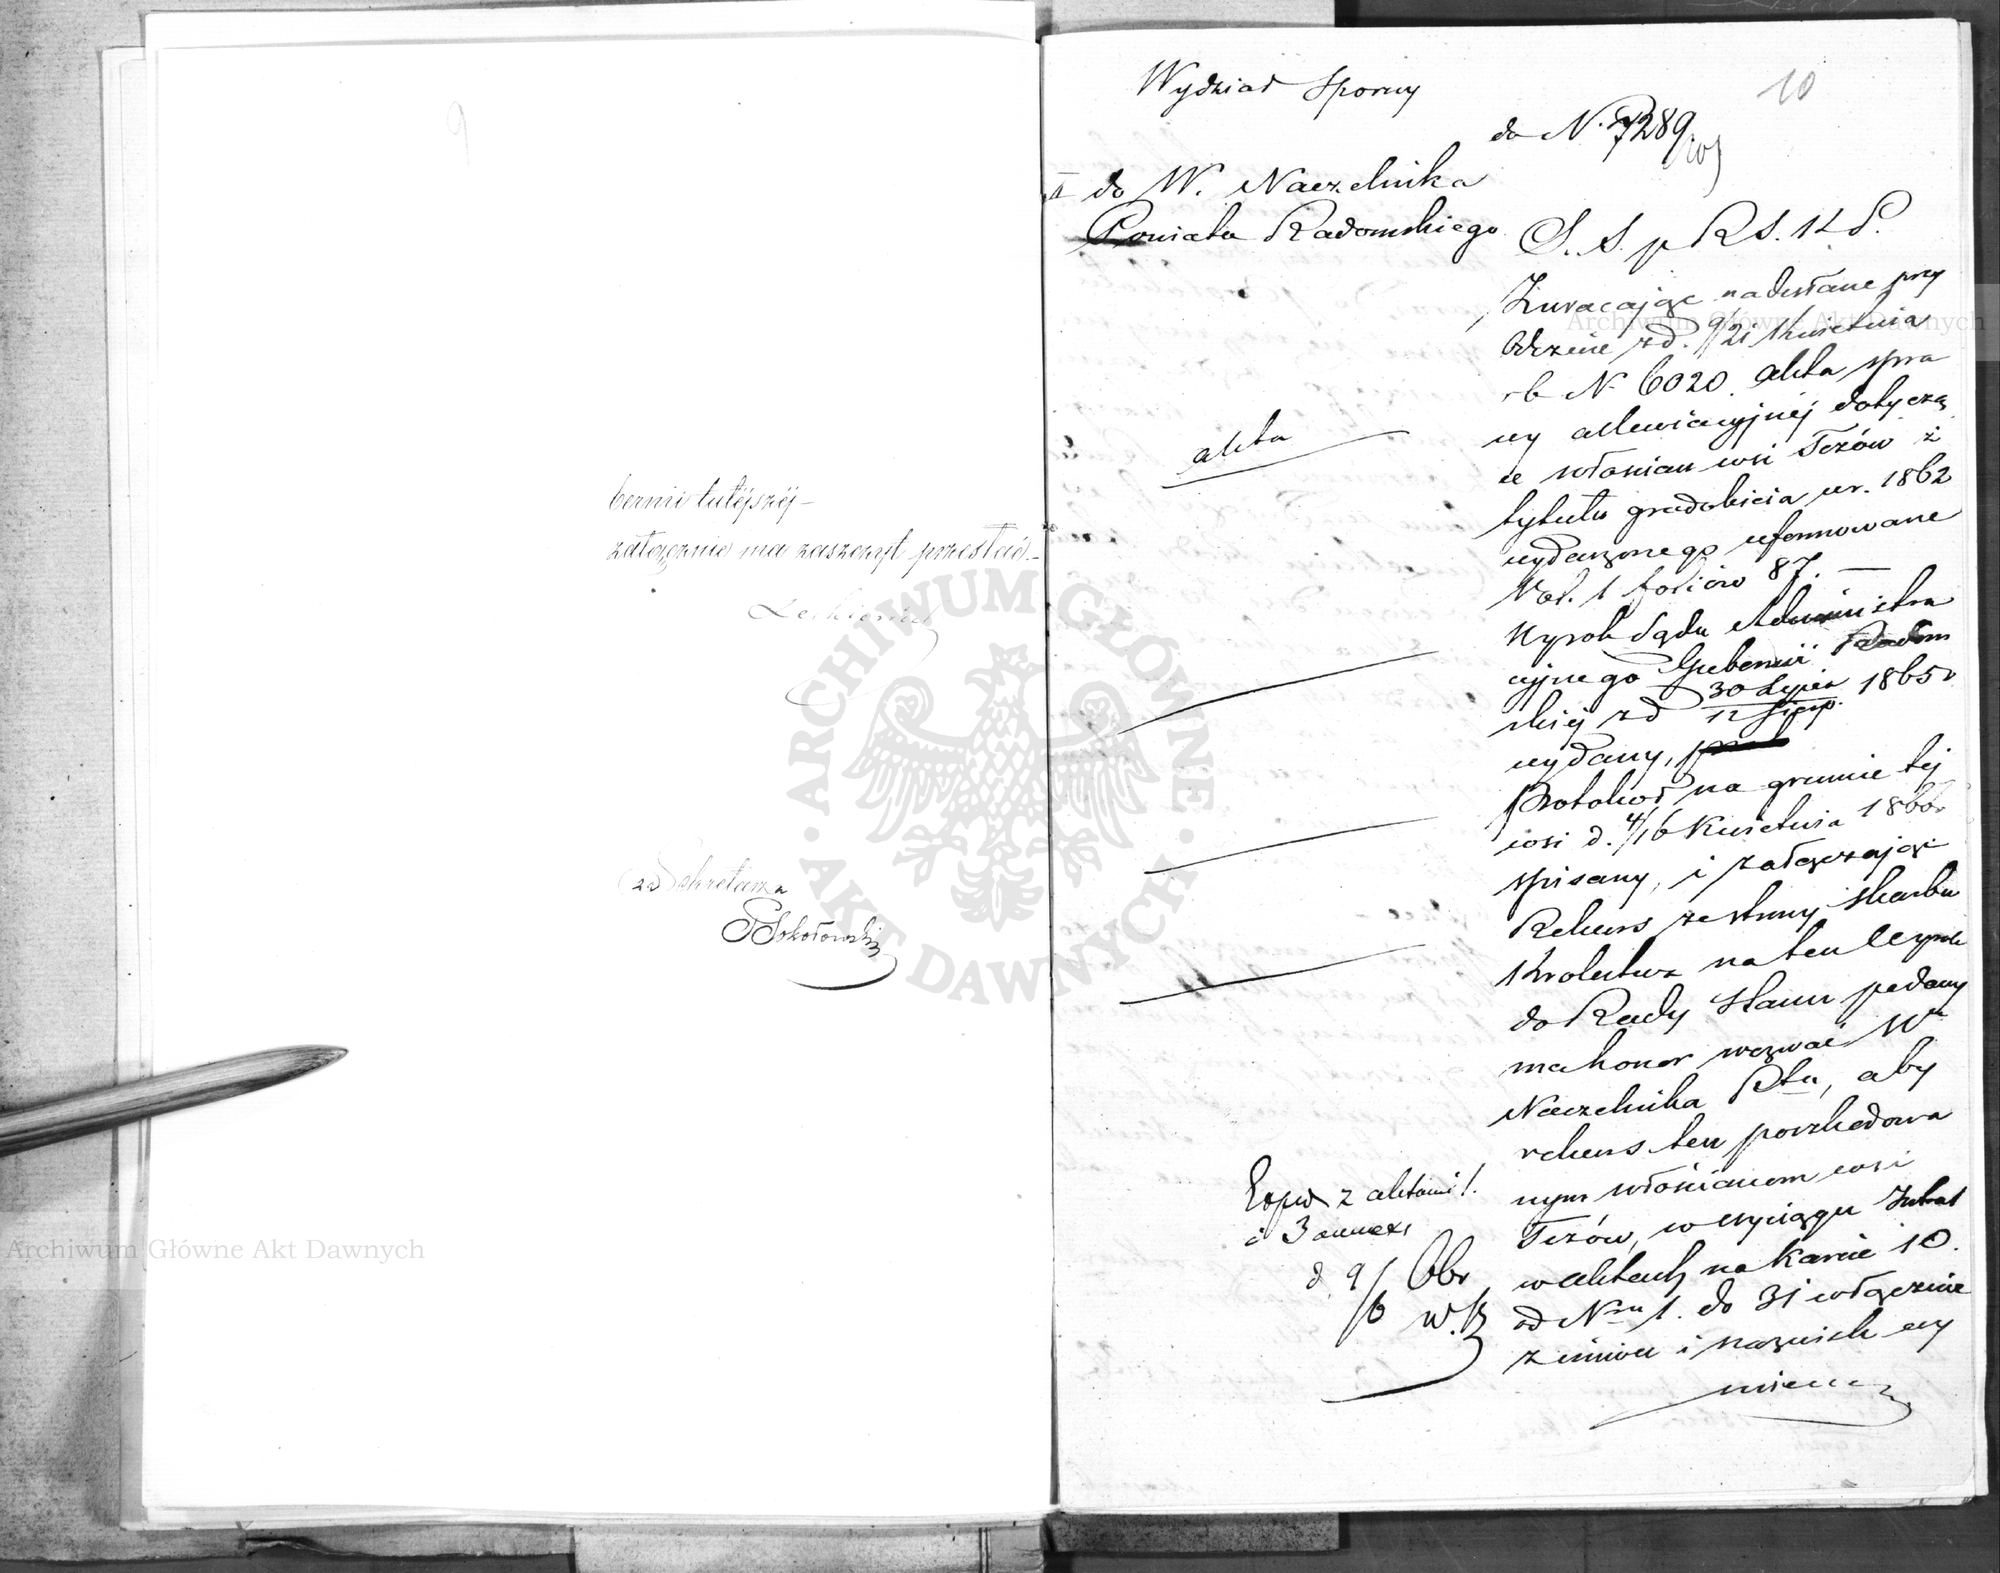 9
bernii tutéjszéj
załącznie ma zaszczyt przesłać
za Sekretarza
Sokołowski
Wydział Sporny
10
do N. 7289
do W. Naczelnika
Powiatu Radomskiego
Zwracając nadesłane przy
Odezwie z d. 9/21 Kwietnia
rb N 6020 akta spra
wy allewiacyjnéj dotyczą
ce włościan wsi Tczów z
tytułu gradobicia w r. 1862
wydarzonego uformowane
Vol. 1 foliów 87. —
Wyrok Sądu Administra
cyjnego Gubernii Radom
skiéj z d 30 Lipca / 12 Sierp. 1865 r
wydany,
Protokół na gruncie téj
wsi d. 4/16 Kwietnia 1866 r
spisany, i załączając
Rekurs ze strony Skarbu
Królestwa na ten Wyrok
do Rady Stanu podany
ma honor wezwać W
Naczelnika Ptu, aby
rekurs ten poszkodowa
nym włościanom wsi
Tczów, w wyciągu
w aktach na karcie 10.
od Nru 1. do 31 włącznie
z imion i nazwisk wy
mien
akta
Exped z aktami 1.
i 3 annexs
d 9/6
Archiwum Główne Akt Dawnych
Archiwum Główne Akt Dawnych
ARCHIWUM GŁÓWNE AKT DAWNYCH